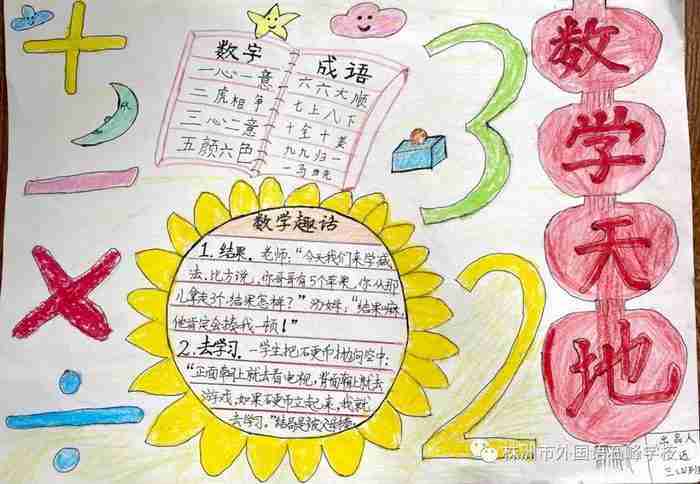 数学天地
数字
一心一意
二虎相争
三心二意
五颜六色
成语
六六大顺
七上八下
十全十美
九九归一
一马当先
数学趣话
1. 结果. 老师:“今天我们来学减
法. 比方说, 你哥哥有5个苹果, 你从那
儿拿走3个, 结果怎样?”
“结果嘛,
他肯定会揍我一顿!”
2. 去学习. 一学生把一枚硬币抛向空中:
“正面朝上就去看电视, 背面朝上就去
游戏, 如果硬币立起来, 我就
去学习。”
出品人
株洲市外国语
学校